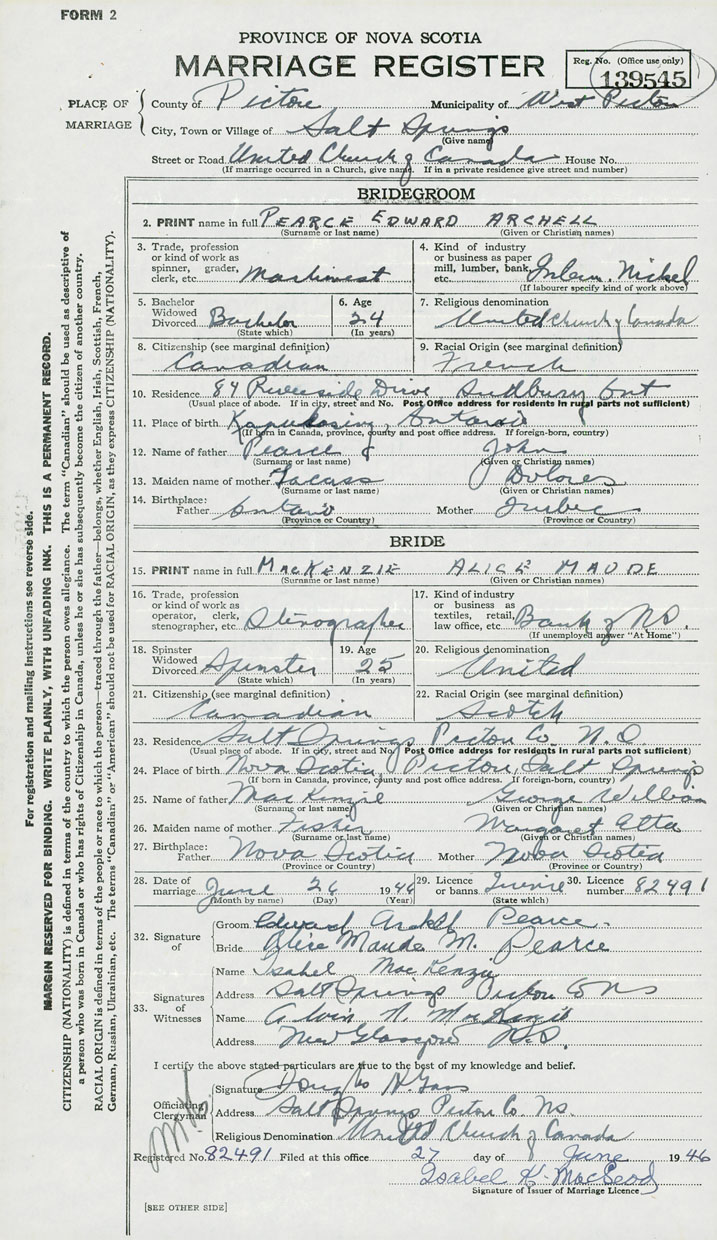 FORM 2
PROVINCE OF NOVA SCOTIA
MARRIAGE REGISTER
Reg. No. (Office use only)
139545
PLACE OF MARRIAGE
County of Pictou Municipality of West Pictou
City, Town or Village of Salt Springs
(Give name)
Street or Road United Church of Canada House No.
(If marriage occurred in a Church, give name. If in a private residence give street and number)
BRIDEGROOM
2. PRINT name in full PEARCE EDWARD ARCHELL
(Surname or last name) (Given or Christian names)
3. Trade, profession or kind of work as spinner, grader, clerk, etc.
4. Kind of industry or business as paper mill, lumber, bank, etc. Intern. Nickel
(If labourer specify kind of work above)
5. Bachelor Widowed Divorced Bachelor
(State which)
6. Age 24
(In years)
7. Religious denomination United Church of Canada
8. Citizenship (see marginal definition) Canadian
9. Racial Origin (see marginal definition) French
10. Residence 84 Riverside Drive Sudbury Ont
(Usual place of abode. If in city, street and No. Post Office address for residents in rural parts not sufficient)
11. Place of birth Kapuskasing, Ontario
(If born in Canada, province, county and post office address. If foreign-born, country)
12. Name of father Pearce John
(Surname or last name) (Given or Christian names)
13. Maiden name of mother Dolores
(Surname or last name) (Given or Christian names)
14. Birthplace: Father Ontario Mother Quebec
(Province or Country) (Province or Country)
BRIDE
15. PRINT name in full MACKENZIE ALICE MAUDE
(Surname or last name) (Given or Christian names)
16. Trade, profession or kind of work as operator, clerk, stenographer, etc. Stenographer
17. Kind of industry or business as textiles, retail, law office, etc. Bank of N.S.
(If unemployed answer "At Home")
18. Spinster Widowed Divorced Spinster
(State which)
19. Age 25
(In years)
20. Religious denomination United
21. Citizenship (see marginal definition) Canadian
22. Racial Origin (see marginal definition) Scotch
23. Residence Salt Springs Pictou Co. N.S.
(Usual place of abode. If in city, street and No. Post Office address for residents in rural parts not sufficient)
24. Place of birth Nova Scotia, Pictou, Salt Springs
(If born in Canada, province, county and post office address. If foreign-born, country)
25. Name of father MacKenzie George William
(Surname or last name) (Given or Christian names)
26. Maiden name of mother Fisher Margaret Etta
(Surname or last name) (Given or Christian names)
27. Birthplace: Father Nova Scotia Mother Nova Scotia
(Province or Country) (Province or Country)
28. Date of marriage June 26 1946
(Month by name) (Day) (Year)
29. Licence or banns
(State which)
30. Licence number 82491
32. Signature of
Groom Edward Archell Pearce
Bride Alice Maude M. Pearce
33. Signatures of Witnesses
Name Isabel MacKenzie
Address Salt Springs Pictou Co NS
Name Alvin N. MacKenzie
Address New Glasgow N.S.
I certify the above stated particulars are true to the best of my knowledge and belief.
Officiating Clergyman
Signature Douglas N.
Address Salt Springs Pictou Co. N.S.
Religious Denomination United Church of Canada
Registered No. 82491 Filed at this office 27 day of June 1946
Isabel K. MacLeod
Signature of Issuer of Marriage Licence
[SEE OTHER SIDE]
For registration and mailing instructions see reverse side.
MARGIN RESERVED FOR BINDING. WRITE PLAINLY, WITH UNFADING INK. THIS IS A PERMANENT RECORD.
CITIZENSHIP (NATIONALITY) is defined in terms of the country to which the person owes allegiance. The term "Canadian" should be used as descriptive of
a person who was born in Canada or who has rights of Citizenship in Canada, unless he or she has subsequently become the citizen of another country.
RACIAL ORIGIN is defined in terms of the people or race to which the person—traced through the father—belongs, whether English, Irish, Scottish, French,
German, Russian, Ukrainian, etc. The terms "Canadian" or "American" should not be used for RACIAL ORIGIN, as they express CITIZENSHIP (NATIONALITY).